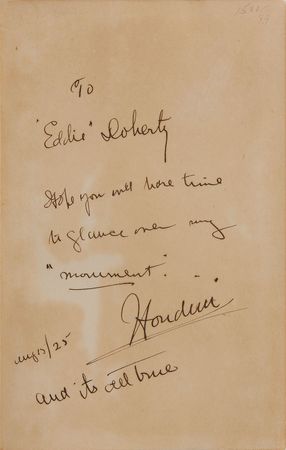 To
"Eddie" Doherty
Hope you will have time
to glance over my
"monument".
Houdini
Aug 13/25
and its all true